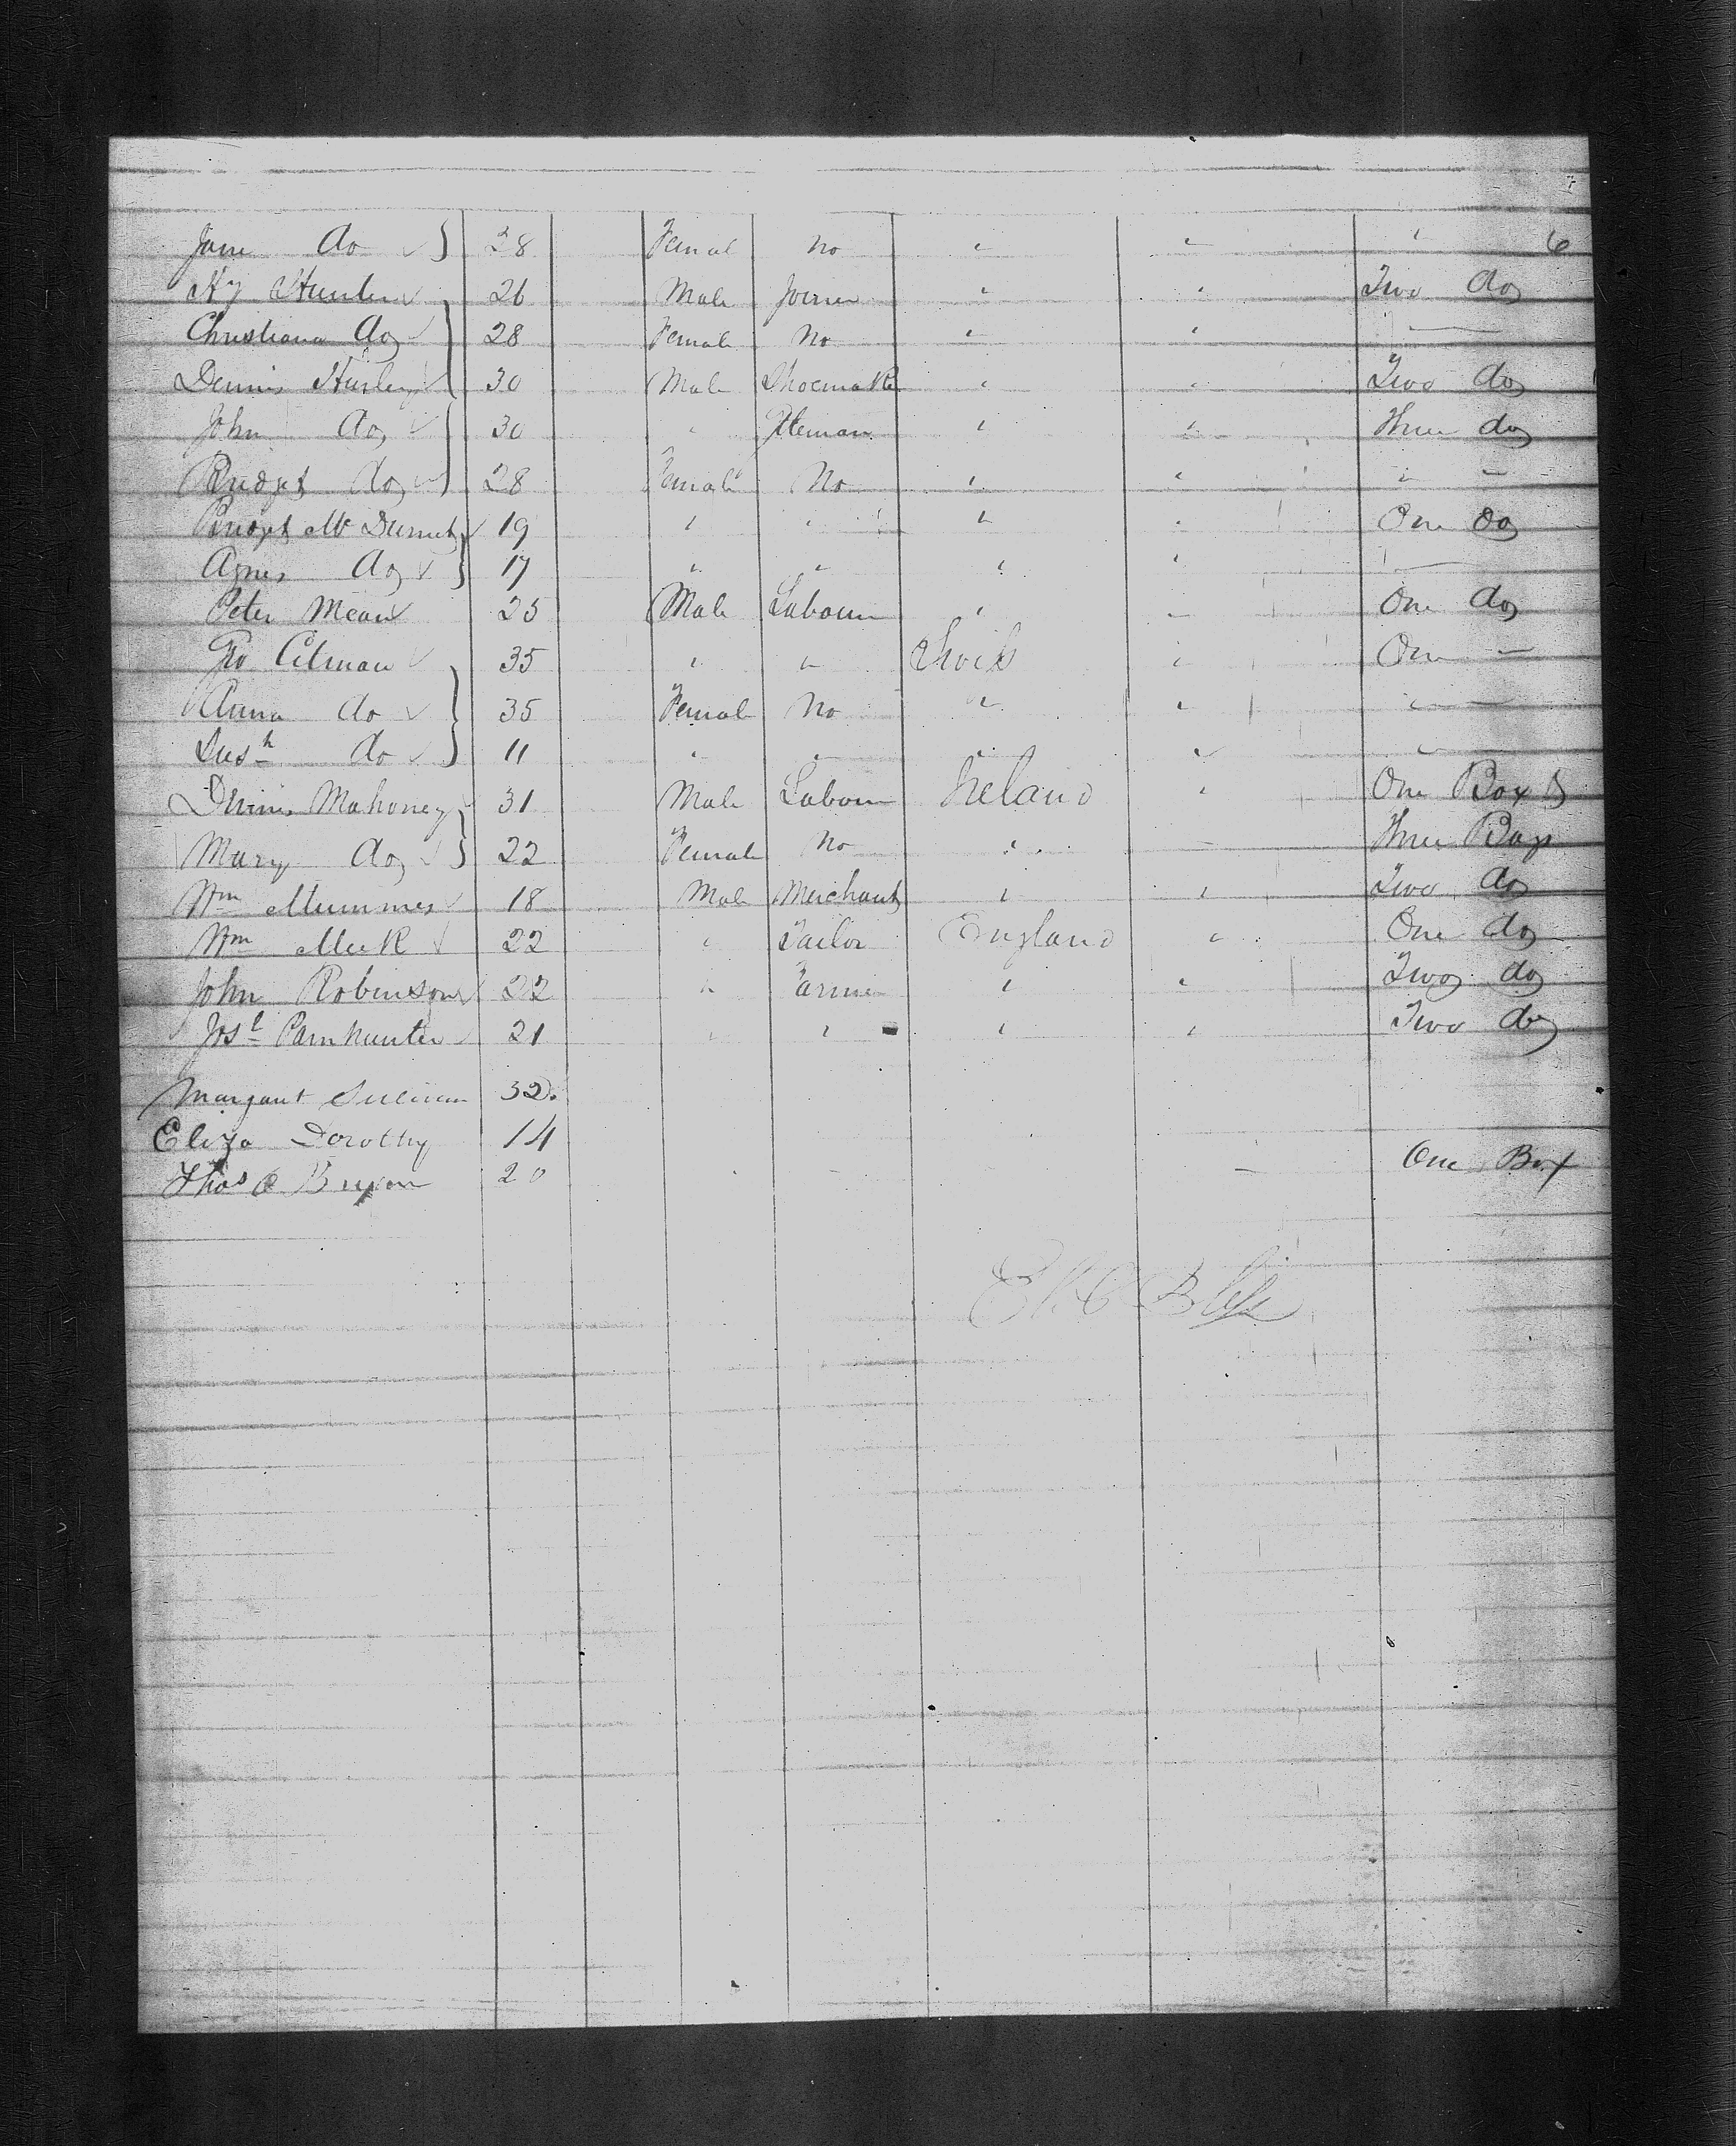 Jane do 38 Femal No " " " 6
Hy Hunter 26 Male Joiner " " Two do
Christiana do 28 Female No " "
Dennis Hurley 30 Male Shoemake " " Two do
John do 30 " " " Three do
Bridgt do 28 Female No " " "
Bridgt Mc 19 " " " " One do
Agnes do 17 " " " "
Peter Mean 25 Male Labour " " One do
Geo Citman 35 " " " One
Anna do 35 Female No " " "
do 11 " " " " "
Dennis Mahoney 31 Male Labour Ireland " One Box &
Mary do 22 Female No " Three Bags
Wm Mummes 18 Male Merchant " " Two do
Wm Meek 22 " Tailor England " One do
John Robinson 22 " Farmer " " Two do
Josh 21 " " " " Two do
Margaret 32.
Eliza Dorothy 14
Thos O Bryan 20 One Box